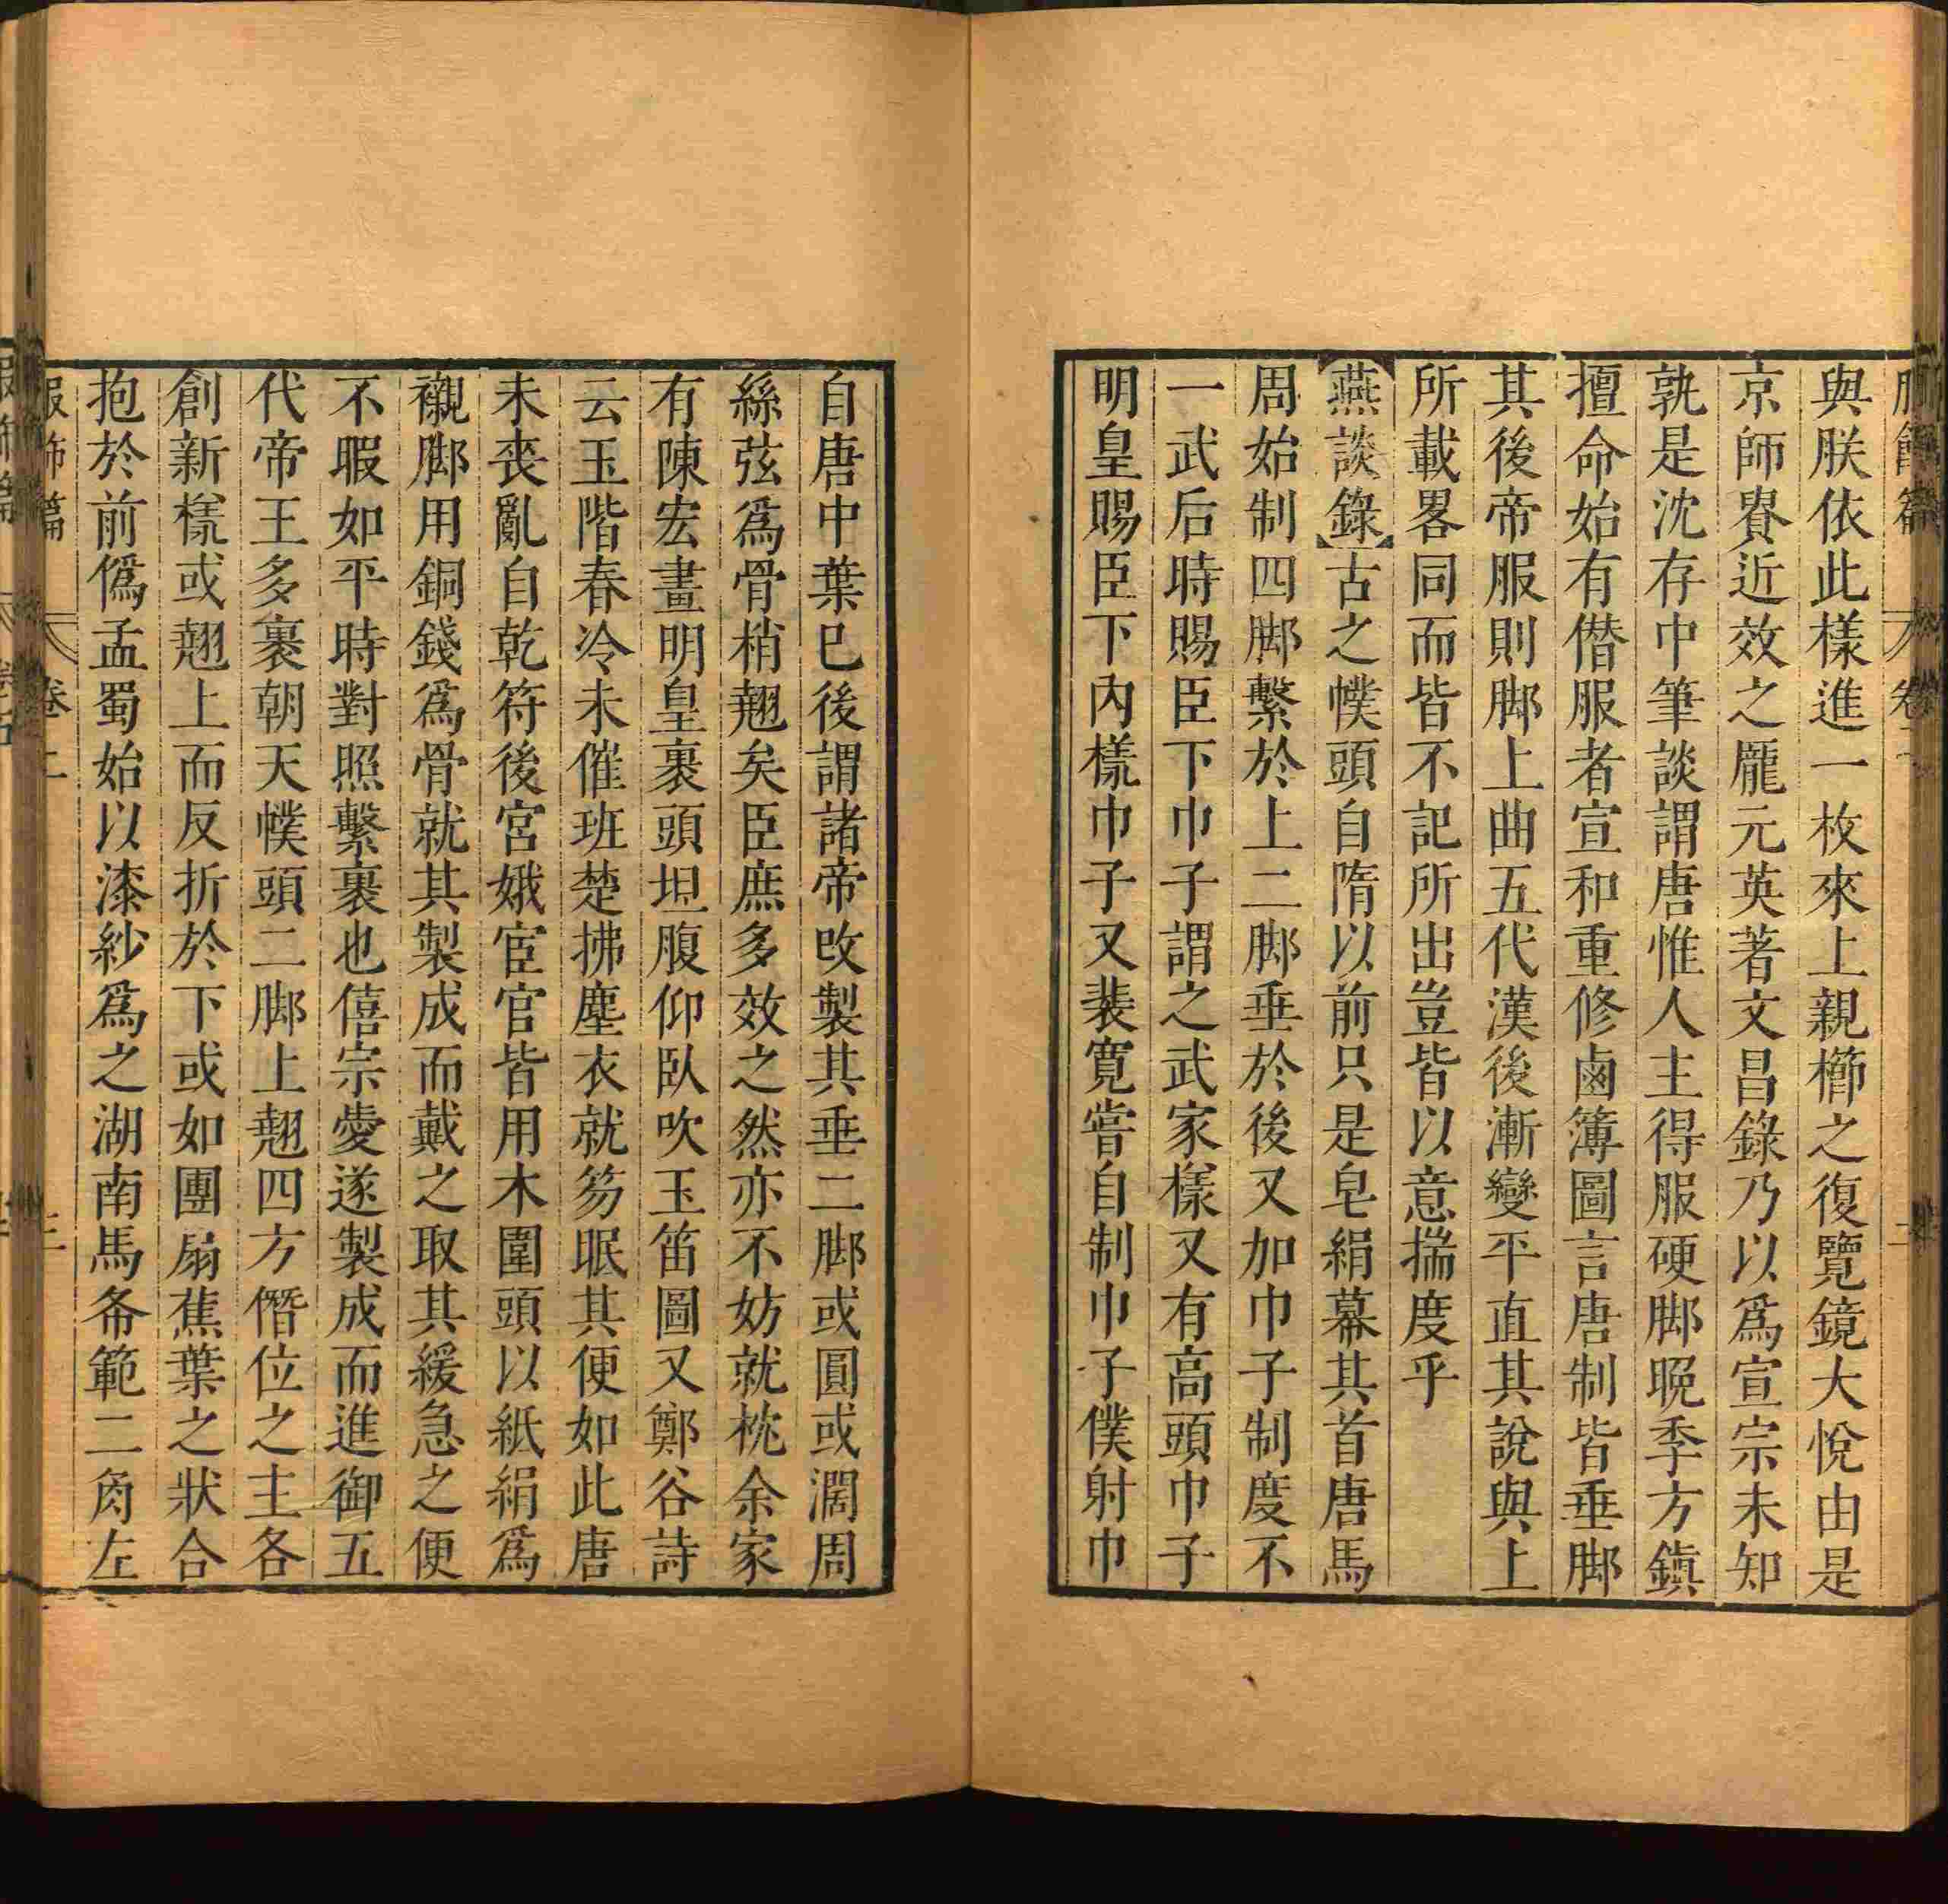 服飾篇 卷二 二
與朕依此樣進一枚來上親櫛之復覽鏡大悅由是
京師賛近效之龐元英著文昌錄乃以爲宣宗未知
孰是沈存中筆談謂唐惟人主得服硬脚晚季方鎮
擅命始有僭服者宣和重修鹵簿圖言唐制皆垂脚
其後帝服則脚上曲五代漢後漸變平直其說與上
所載畧同而皆不記所出豈皆以意揣度乎
燕談錄古之幞頭自隋以前只是皂絹幕其首唐馬
周始制四脚繫於上二脚垂於後又加巾子制度不
一武后時賜臣下巾子謂之武家樣又有高頭巾子
明皇賜臣下內樣巾子又裴寬嘗自制巾子僕射巾
自唐中葉已後謂諸帝改製其垂二脚或圓或濶周
絲弦爲骨梢翹矣臣庶多效之然亦不妨就枕余家
有陳宏畫明皇裹頭坦腹仰臥吹玉笛圖又鄭谷詩
云玉階春冷未催班楚拂塵衣就笏眠其便如此唐
未喪亂自乾符後宮娥宦官皆用木圍頭以紙絹爲
襯脚用銅錢爲骨就其製成而戴之取其緩急之便
不暇如平時對照繫裹也僖宗愛遂製成而進御五
代帝王多裹朝天幞頭二脚上翹四方僭位之主各
創新樣或翹上而反折於下或如團扇蕉葉之狀合
抱於前僞孟蜀始以漆紗爲之湖南馬希範二角左
服飾篇 卷二 三